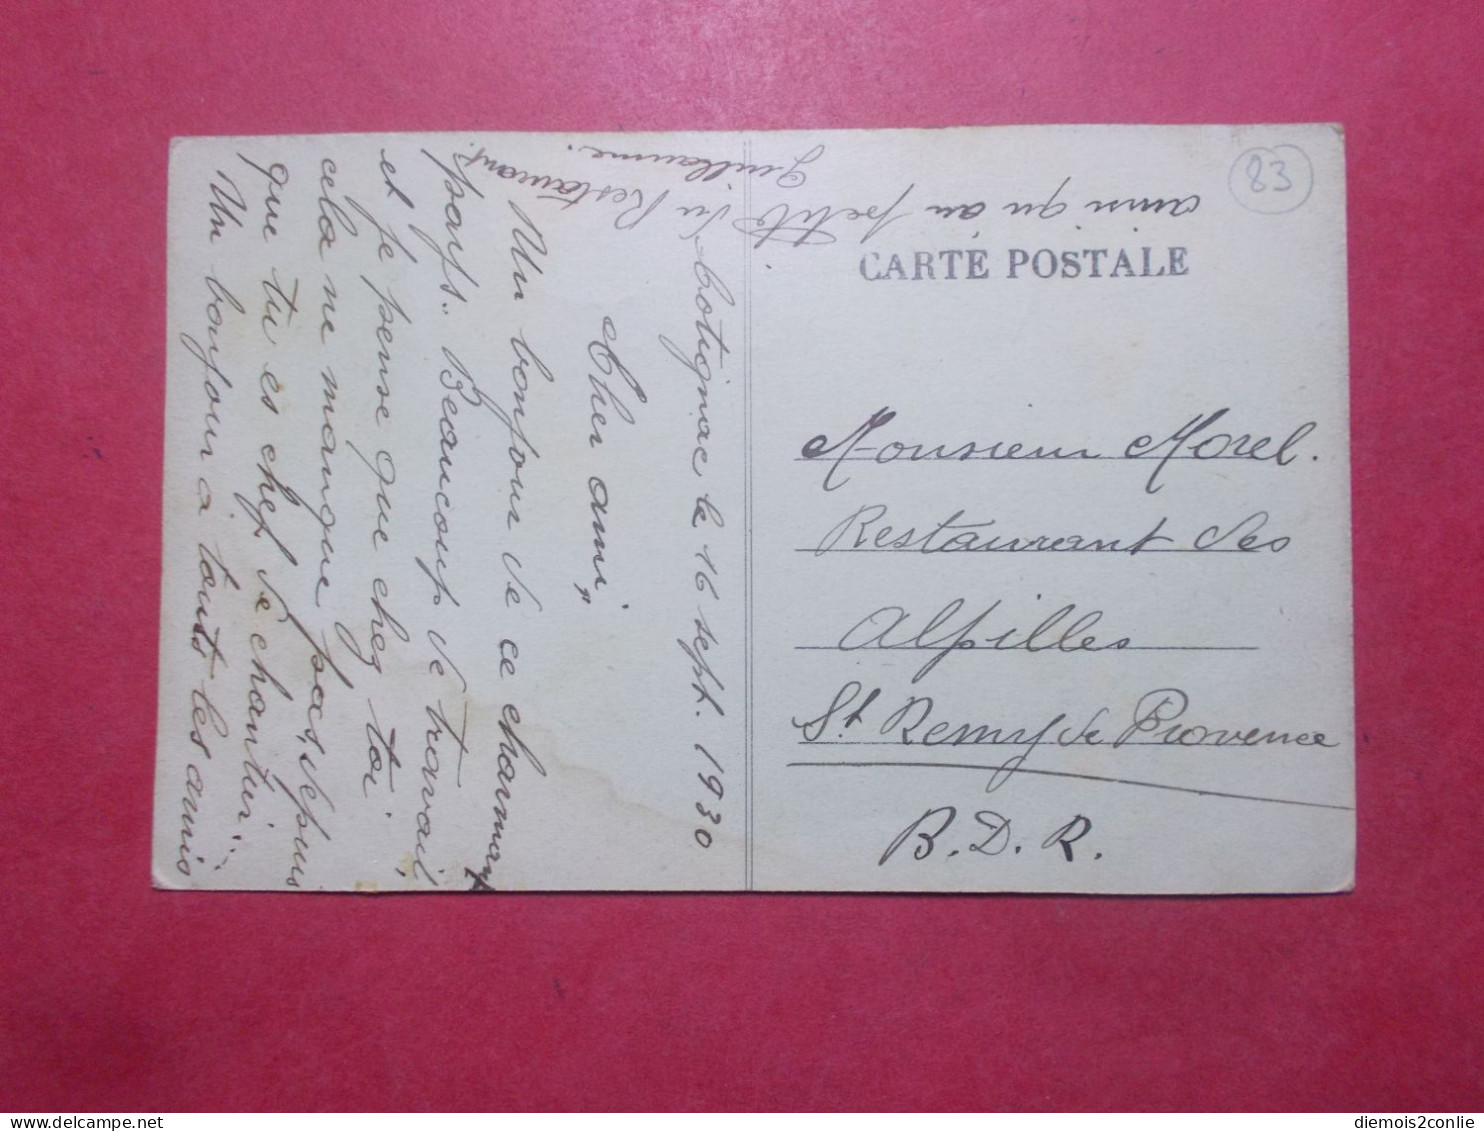 Cotignac le 16 sept. 1930
Cher ami,
Un bonjour de ce charmant
pays.. Beaucoup de travail,
et je pense que chez toi
cela ne manque pas, depuis
que tu es chef de chantier..
Un bonjour à touts les amis
ainsi qu'au petit du Restaurant.
Guillaume.
83
CARTE POSTALE
Monsieur Morel.
Restaurant des
Alpilles
St Remy de Provence
B.D.R.
delcampe.net
diemois2conlie